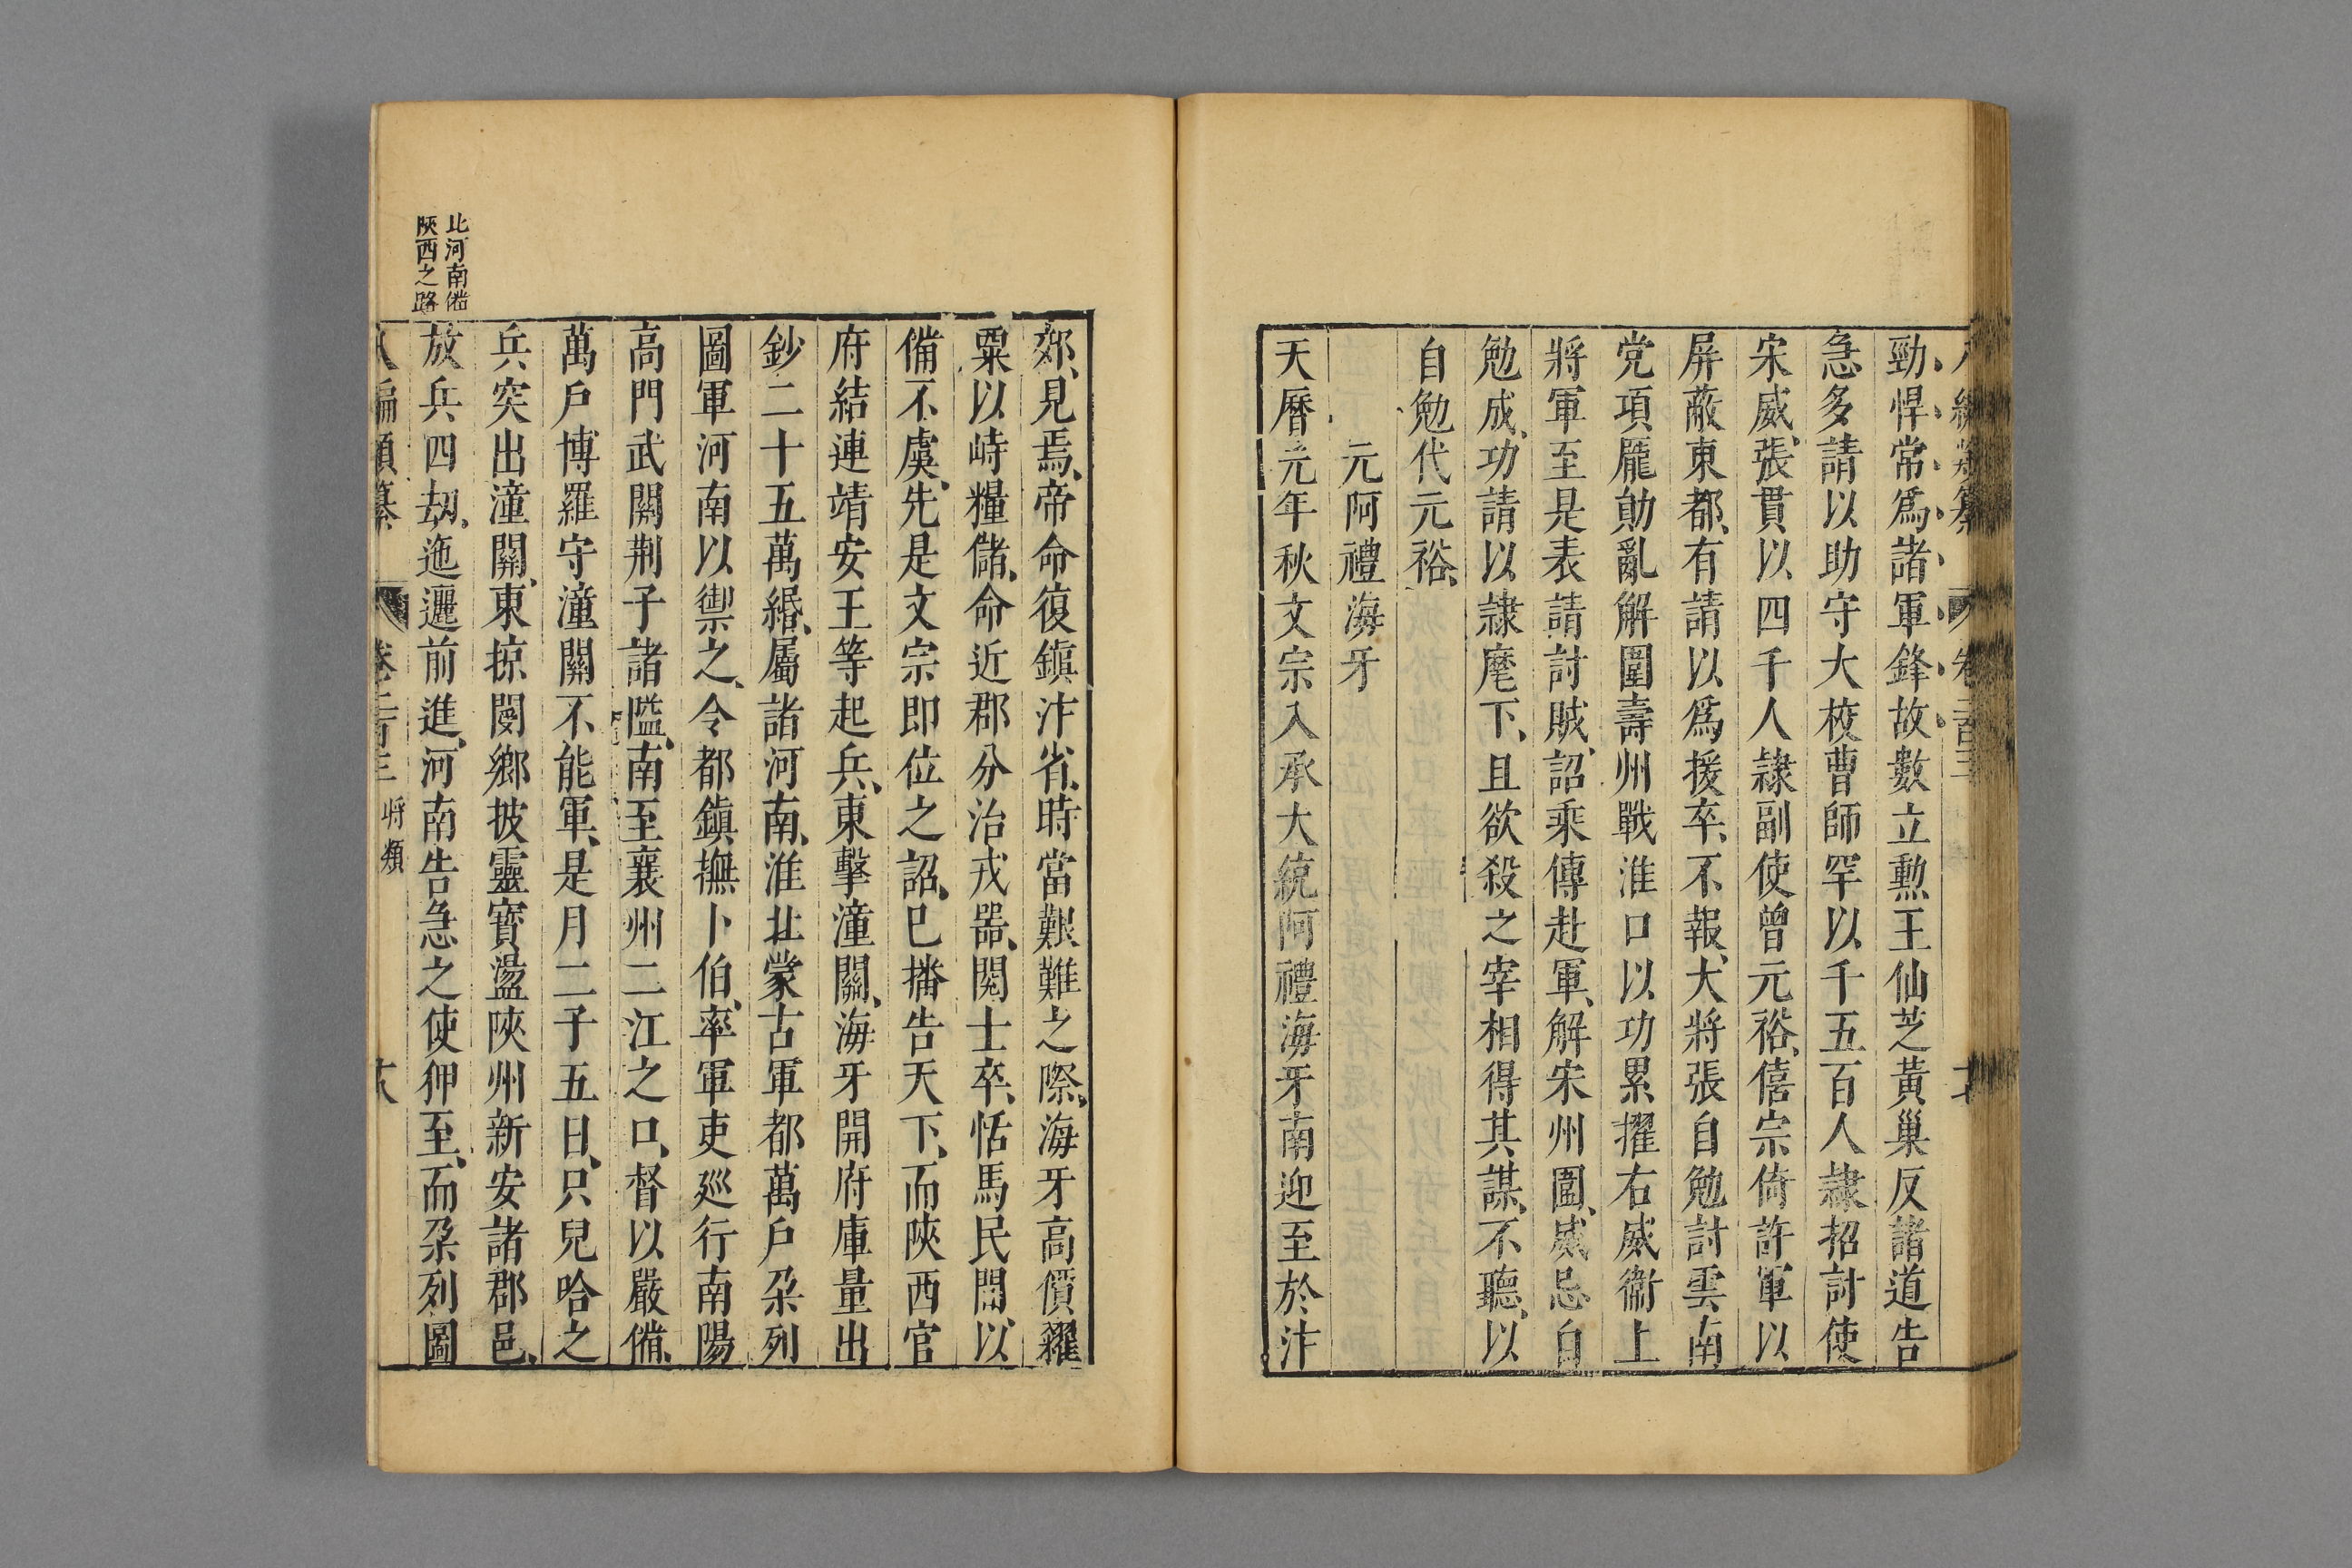 勁悍常爲諸軍鋒故數立勲王仙芝黃巢反諸道告
急多請以助守大校曹師罕以千五百人隷招討使
宋威張貫以四千人隷副使曾元裕僖宗倚許軍以
屏蔽東都有請以爲援卒不報大將張自勉討雲南
党項龎勛亂解圍壽州戰淮口以功累擢右威衞上
將軍至是表請討賊詔乘傳赴軍解宋州圍威忌自
勉成功請以隷麾下且欲殺之宰相得其謀不聽以
自勉代元裕
元阿禮海牙
天曆元年秋文宗入承大統阿禮海牙南迎至於汴
郊見焉帝命復鎮汴省時當艱難之際海牙高價糴
粟以峙糧儲命近郡分治戎器閱士卒恬馬民間以
備不虞先是文宗即位之詔已播告天下而陝西官
府結連靖安王等起兵東擊潼關海牙開府庫量出
鈔二十五萬緡屬諸河南淮北蒙古軍都萬戶朶列
圖軍河南以禦之令都鎮撫卜伯率軍吏廵行南陽
高門武關荆子諸隘南至襄州二江之口督以嚴備
萬戶博羅守潼關不能軍是月二子五日只兒哈之
兵突出潼關東掠閿鄉披靈寶盪陝州新安諸郡邑
放兵四刼迤邐前進河南告急之使狎至而朶列圖
此河南備
陝西之路
八編類纂 卷二百三 將類 十八